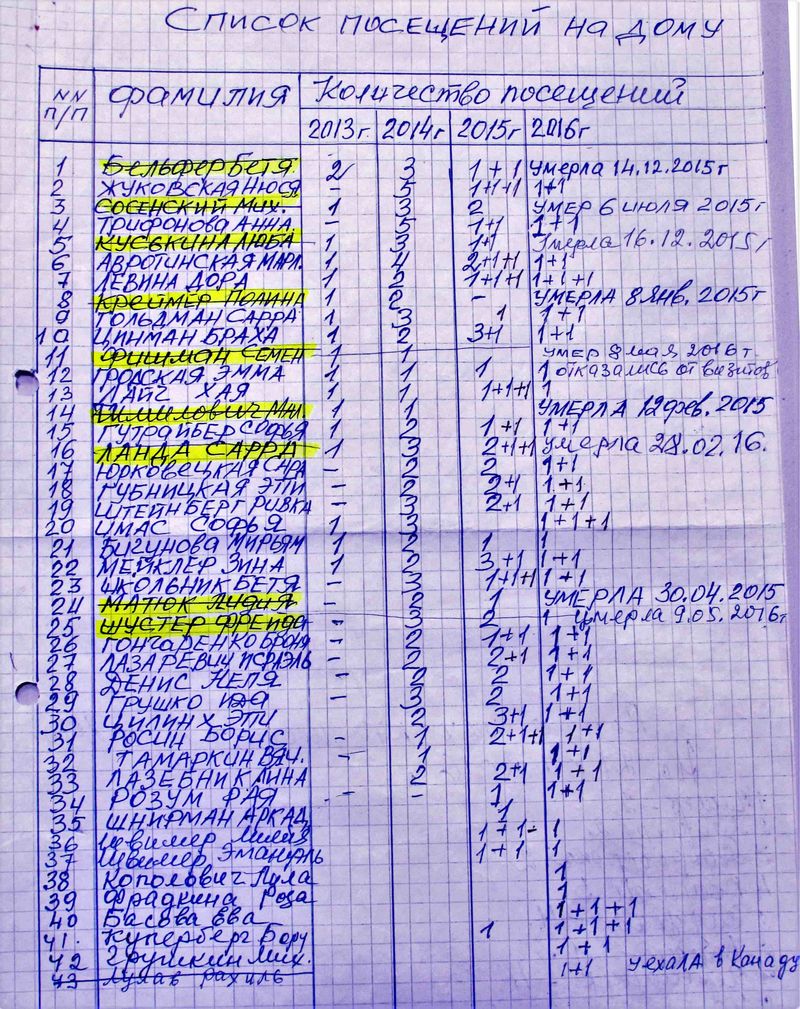 Список посещений на дому
NN п/п фамилия Количество посещений
2013г. 2014г. 2015г 2016г
1 Бельфер Бетя 2 3 1+1 умерла 14.12.2015г
2 Жуковская Нюся - 5 1+1+1 1+1
3 Сосенский Мих. 1 3 2 умер 6 июля 2015г
4 Трифонова Анна - 5 1+1 1+1
5 Куськина Люба 1 3 1+1 умерла 16.12.2015г
6 Авротинская 1 4 2+1+1 1+1
7 Левина Дора 1 2 1+1+1 1+1+1
8 Креймер Полина 1 2 - умерла 8 янв. 2015г
9 Гольдман Сарра 1 3 1 1+1
10 Цинман Браха 1 2 3+1 1+1
11 Фишман Семен 1 1 умер 8 мая 2016г
12 Гродская Эмма 1 1 1 1 отказались от визитов
13 Лайч Хая 1 1 1+1+1 1
14 1 1 умерла 12 фев. 2015
15 Гутрайбер Софья 1 2 1+1 1+1
16 Ланда Сарра 1 3 2+1+1 умерла 28.02.16.
17 Юрковецкая Сара - 2 2 1+1
18 Губницкая Эти - 2 2+1 1+1
19 Штейнберг Ривка - 3 2+1 1+1
20 Имас Софья 1 3 1+1+1
21 Бигунова Мирьям 1 2 1 1
22 Мейклер Зина 1 2 3+1 1+1
23 Школьник Бетя - 3 1+1+1 1+1
24 Матюк Лидия - 2 1 умерла 30.04.2015
25 Шустер Фрейда - 3 2 1 умерла 9.05.2016г
26 Гончаренко Броня - 2 1+1 1+1
27 Лазаревич Исраэль - 2 2+1 1+1
28 Денис Неля - 2 2 1+1
29 Грушко Ида - 3 2 1+1
30 Цилинх Эти 2 3+1 1+1
31 Росин Борис - 1 2+1+1 1+1
32 Тамаркин Вяч. - 1 1+1
33 Лазебник Лина 2 2+1 1+1
34 Розум Рая - - 1 1+1
35 Шнирман Аркад. 1
36 Швимер 1+1- 1
37 Швимер Эмануэль 1+1 1
38 Кополович Лула 1
39 Фрадкина Роза 1
40 Басова Ева 1+1+1
41. Куперберг Бору 1 1+1+1
42 Грушкин Мих. 1+1
43 Лулав Рахиль 1+1 уехала в Канаду